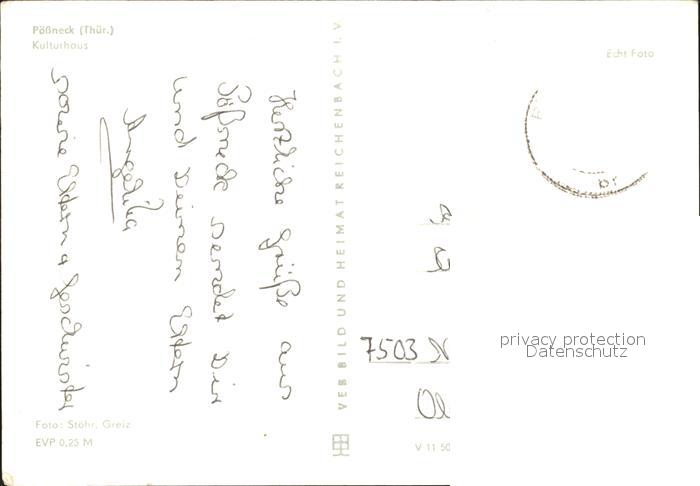 Pößneck (Thür.)
Kulturhaus
Echt Foto
Herzliche Grüße aus
Pößneck sendet Dir
und Deinen Eltern
Angelika
sowie Eltern + Geschwister
VEB BILD UND HEIMAT REICHENBACH I. V
7503
privacy protection
Datenschutz
Foto: Stöhr, Greiz
EVP 0,25 M
V 11 50